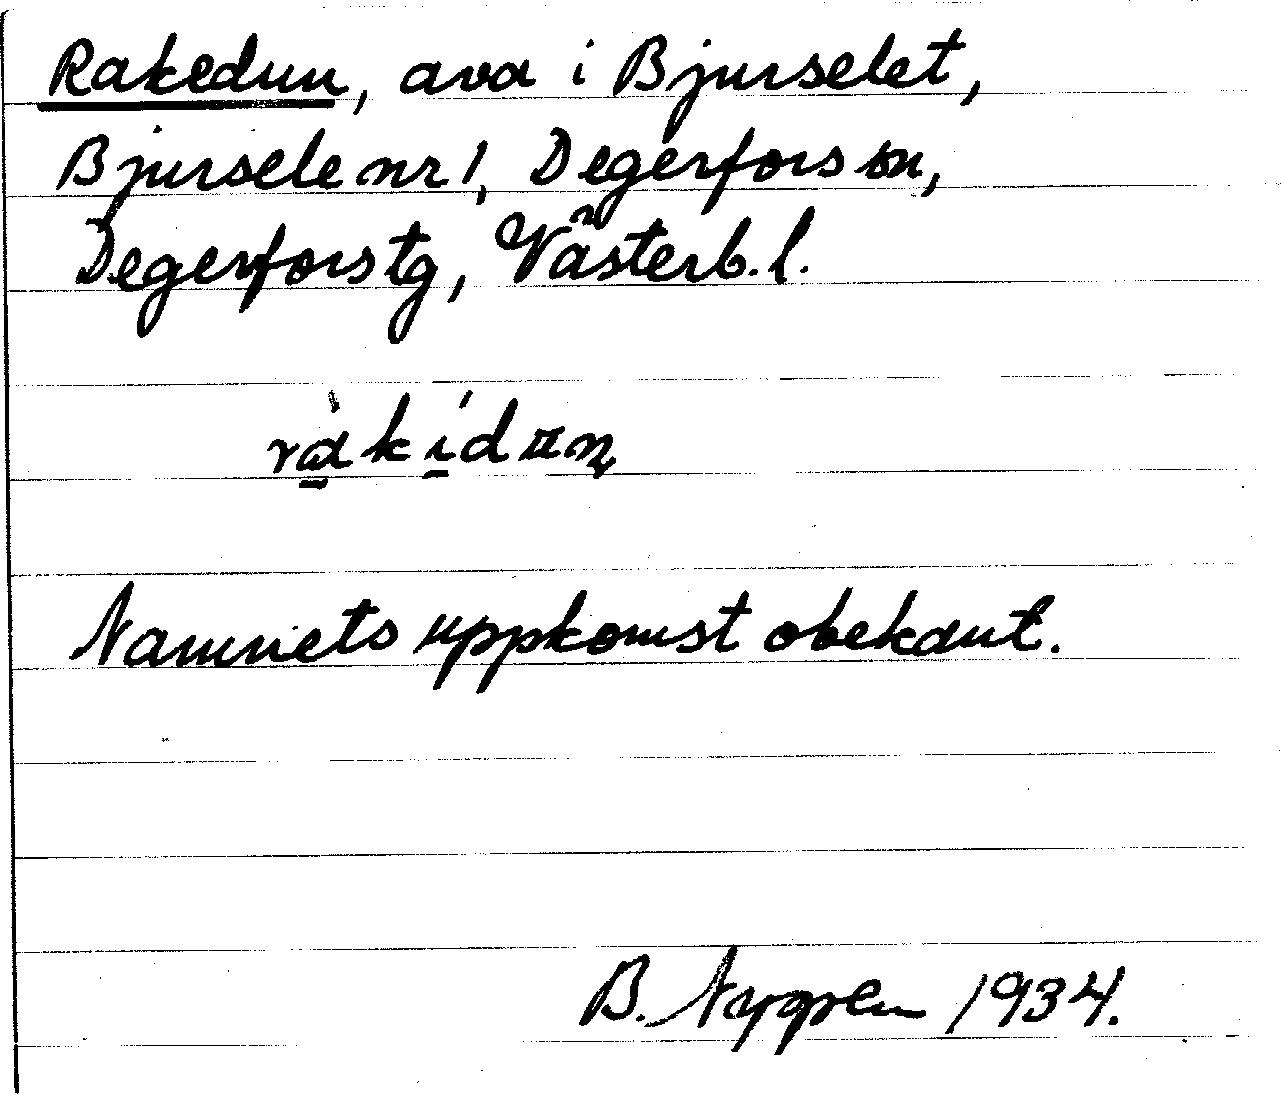 Rakedun, ava i Bjurselet,
Bjursele nr 1, Degerfors sn,
Degerfors tg, Västerb. l.
ràkídun
Namnets uppkomst obekant.
B. Nygren 1934.